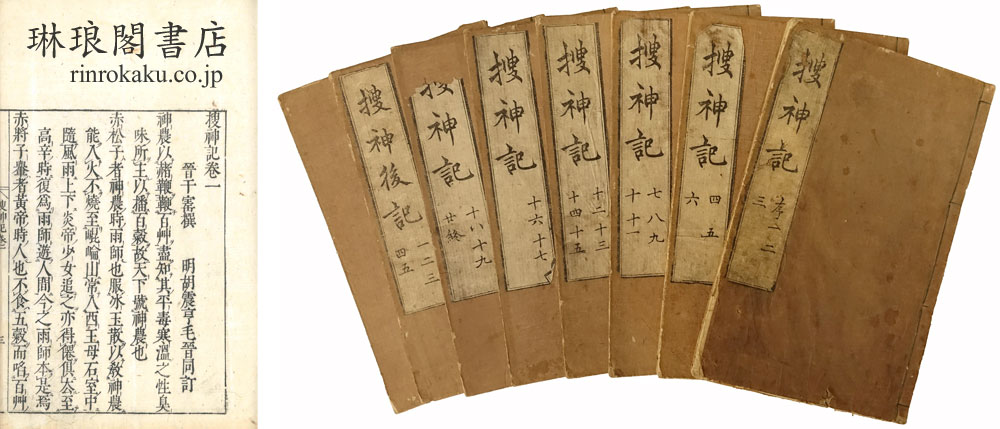 琳琅閣書店
rinrokaku.co.jp
搜神記卷一
晉干寳撰 明胡震亨毛晉同訂
神農以赭鞭鞭百艸盡知其平毒寒溫之性臭
味所主以播百穀故天下號神農也
赤松子者神農時雨師也服冰玉散以敎神農
能入火不燒至崐崘山常入西王母石室中
隨風雨上下炎帝少女追之亦得僊俱去至
高辛時復爲雨師遊人間今之雨師本是焉
赤將子轝者黃帝時人也不食五穀而啗百艸
三
搜神記
一二
三
搜神記
四五
六
搜神記
七八九
十十一
搜神記
十二十三
十四十五
搜神記
十六十七
神記
十八十九
廿終
搜神後記
一二三
四五